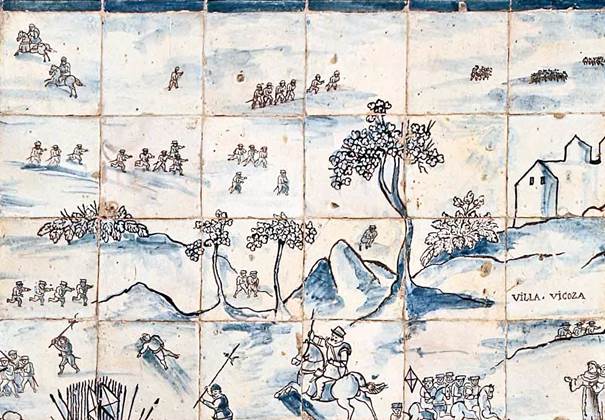 VILLA . VICOZA